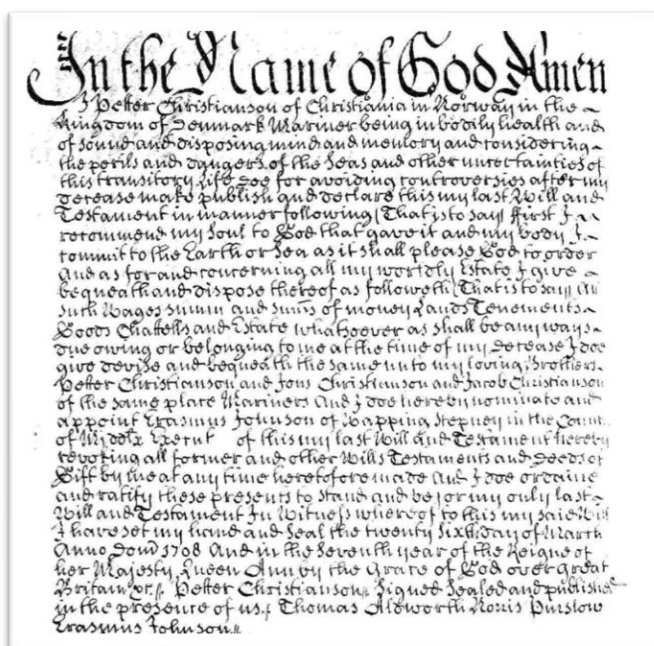 In the Name of God Amen
I Petter Christianson of Christiania in Norway in the
Kingdom of Denmark Mariner being in bodily health and
of sound and disposing mind and memory and considering
the perils and dangers of the Seas and other uncertainties of
this transitory Life doe for avoiding controversies after my
decease make publish and declare this my last Will and
Testament in manner following (That is to say) ffirst I
recommend my Soul to God that gave it and my body I
commit to the Earth or Sea as it shall please God to order
And as for and concerning all my worldly Estate I give
bequeath and dispose thereof as followeth (That is to say) All
such Wages summ and sums of money Lands Tenements
Goods Chattells and Estate whatsoever as shall be any ways
due owing or belonging to me at the time of my decease I doe
give devise and bequeath the same unto my loving Brothers
Petter Christianson and Jons Christianson and Jacob Christianson
of the same place Mariners And I doe hereby nominate and
appoint Erasmus Johnson of Wapping Stepney in the Count
of Middx Execut of this my last Will and Testament hereby
revoking all former and other Wills Testaments and Deeds of
Gift by me at any time heretofore made And I doe ordaine
and ratify these presents to stand and be for my only last
Will and Testament In Witness whereof to this my said Will
I have set my hand and Seal the twenty Sixth day of March
Anno Dom 1708 And in the Seventh year of the Reigne of
her Majesty Queen Ann by the Grace of God over great
Britain &c. Petter Christianson Signed Sealed and published
in the presence of us Thomas Aldworth Norris Purslow
Erasmus Johnson